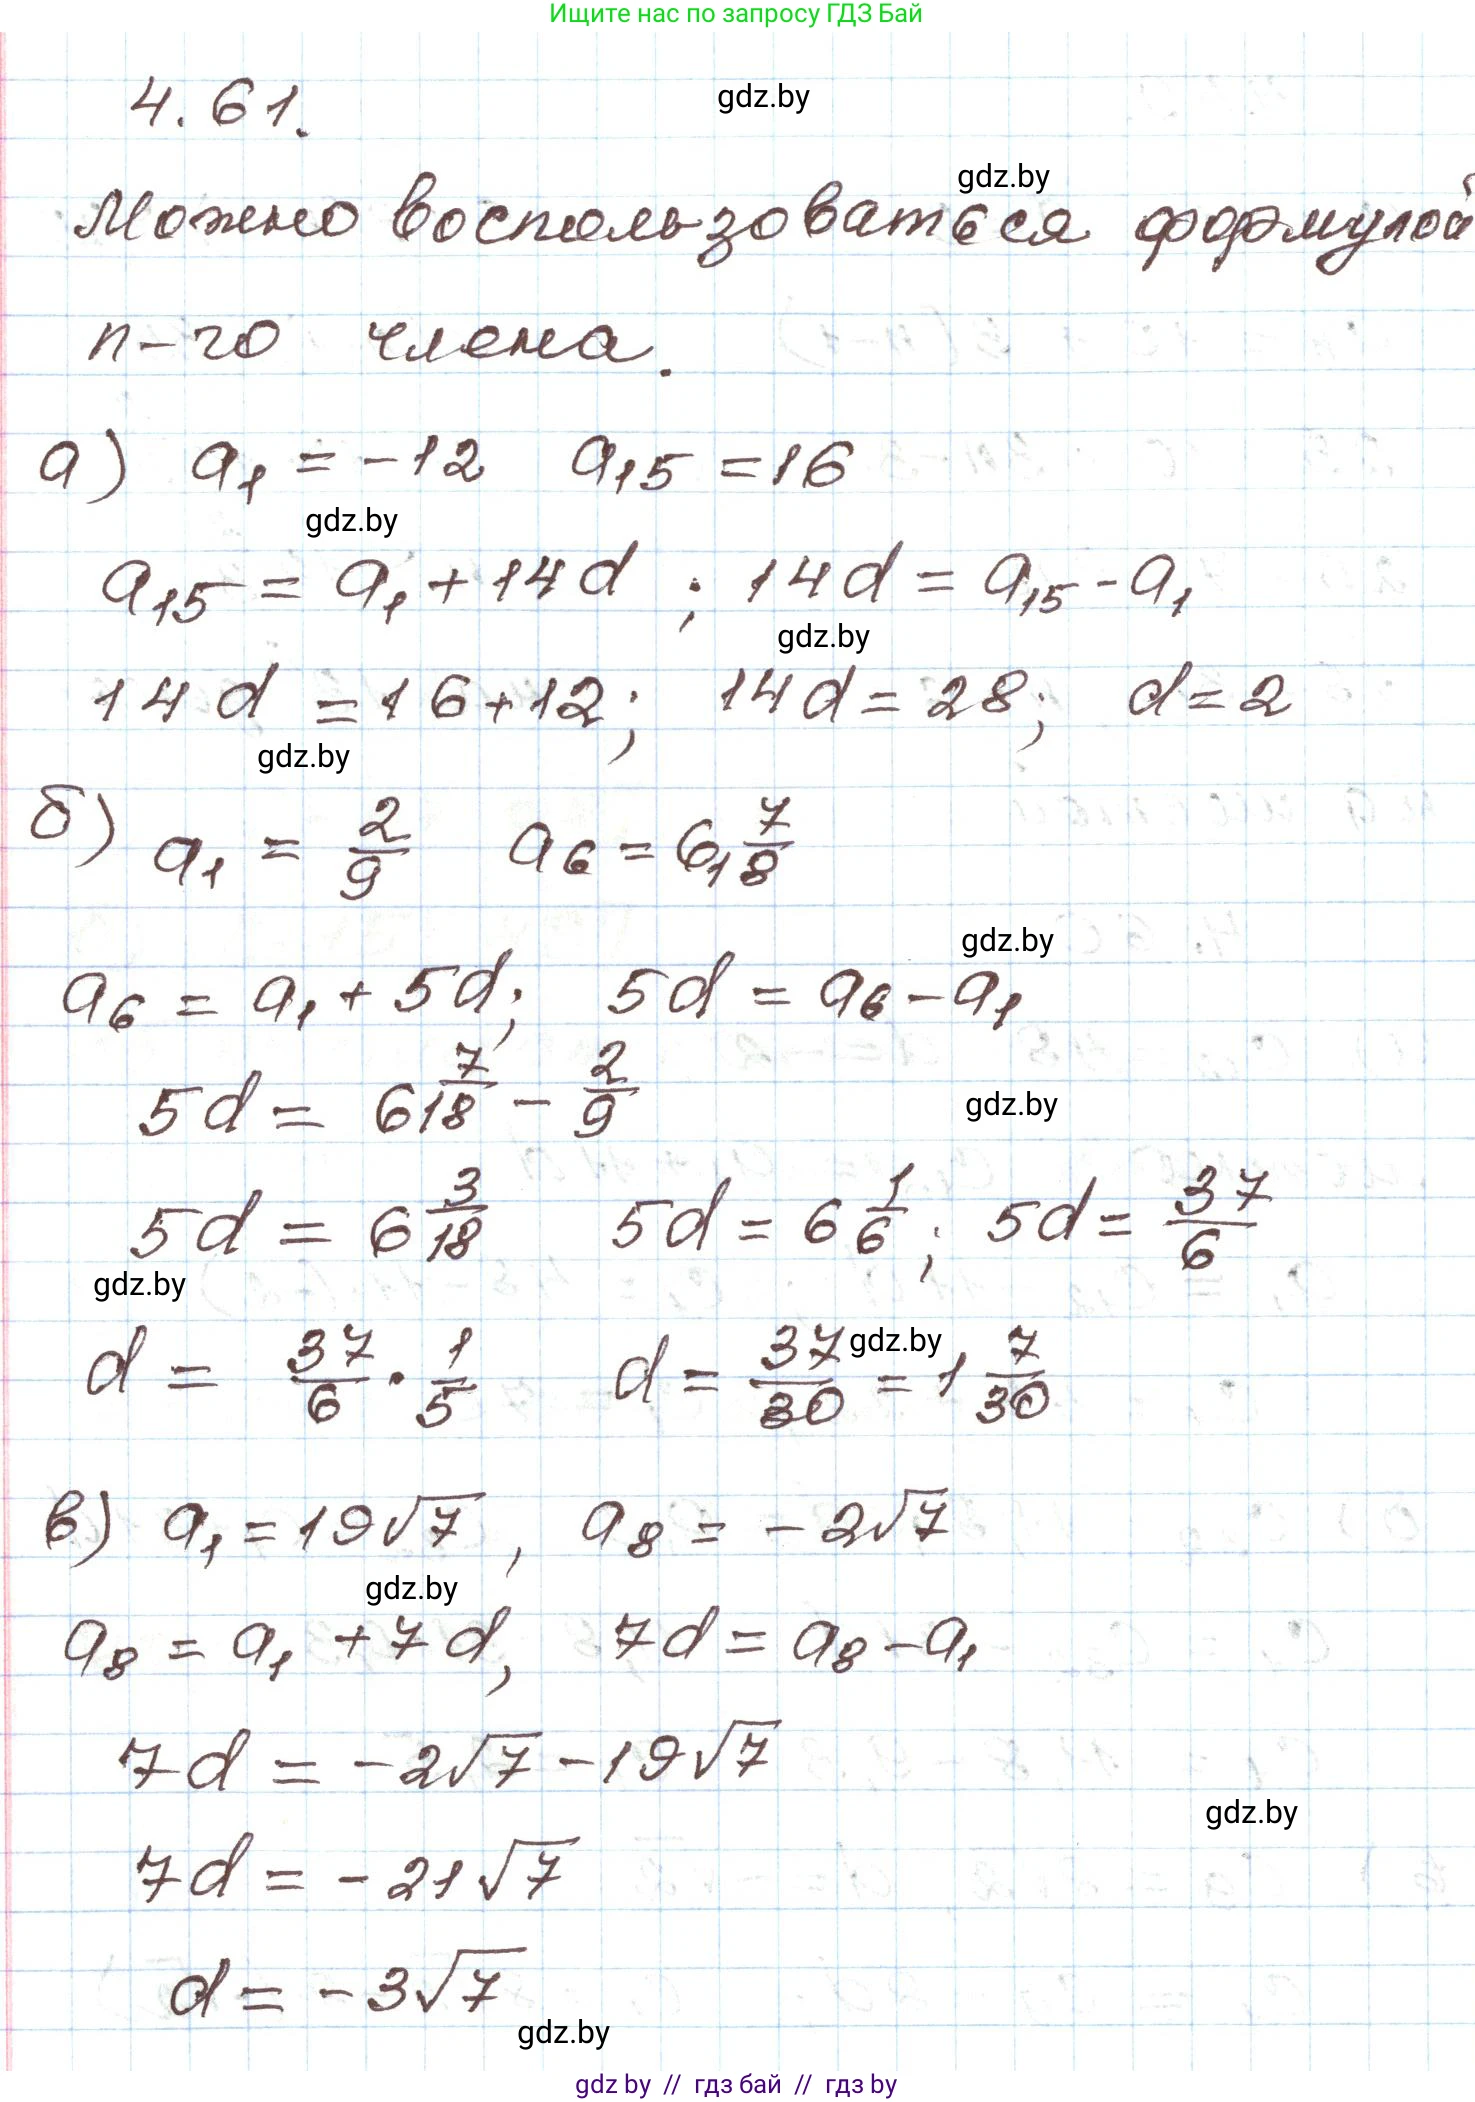 Ищите нас по запросу ГДЗ Бай
4.61.
gdz.by
gdz.by
Можно воспользоваться формулой
n-го члена.
а) a₁ = -12 a₁₅ = 16
gdz.by
a₁₅ = a₁ + 14d ; 14d = a₁₅ - a₁
gdz.by
14d = 16+12; 14d = 28; d = 2
gdz.by
б) a₁ = 2/9 a₆ = 6,7/18
gdz.by
a₆ = a₁ + 5d; 5d = a₆ - a₁
5d = 6 7/18 - 2/9
gdz.by
5d = 6 3/18 5d = 6 1/6; 5d = 37/6
gdz.by
d = 37/6 · 1/5 d = 37/30 = 1 7/30
gdz.by
в) a₁ = 19√7, a₈ = -2√7
gdz.by
a₈ = a₁ + 7d, 7d = a₈ - a₁
7d = -2√7 - 19√7
gdz.by
7d = -21√7
d = -3√7
gdz.by
gdz by // гдз бай // гдз by